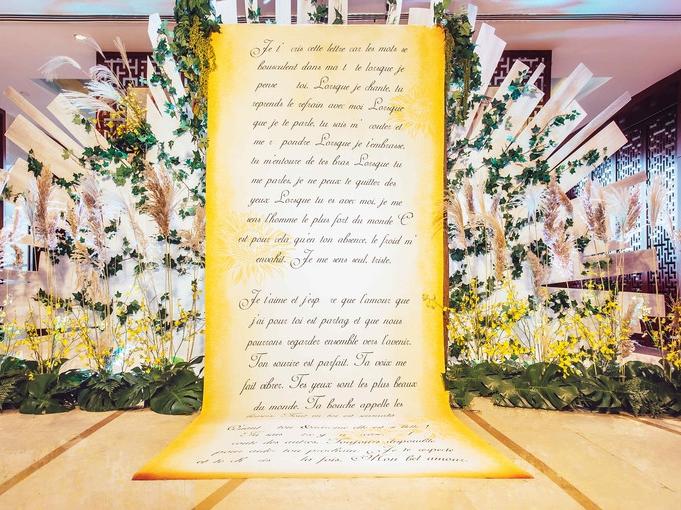 Je t cris cette lettre car les mots se
bousculent dans ma t te lorsque je
pense toi. Lorsque je chante, tu
reprends le refrain avec moi Lorsque
que je te parle, tu sais m couter et
me r pondre Lorsque je t'embrasse,
tu m'entoure de tes bras Lorsque tu
me parles, je ne peux te quitter des
yeux Lorsque tu es avec moi, je me
sens l'homme le plus fort du monde C
est pour cela qu'en ton absence, le froid m'
envahit. Je me sens seul, triste.
Je t'aime et j'esp re que l'amour que
j'ai pour toi est partag et que nous
pourrons regarder ensemble vers l'avenir.
Ton sourire est parfait. Ta voix me
fait vibrer. Tes yeux sont les plus beaux
du monde. Ta bouche appelle les
Quant ton
des autres. Toujours disponible
pour aider ton prochain. Je te respecte
et te d la fois. Mon bel amour.